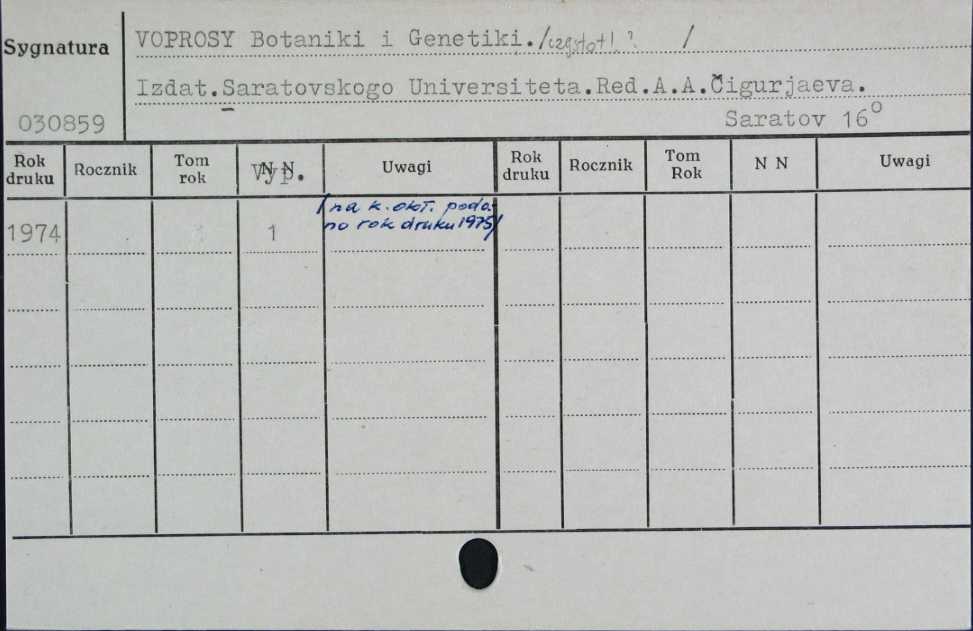 Sygnatura
VOPROSY Botaniki i Genetiki./częstotl.? /
Izdat.Saratovskogo Universiteta.Red.A.A.Čigurjaeva.
030859
Saratov 16°
Rok druku Rocznik Tom rok Vyp. Uwagi Rok druku Rocznik Tom Rok N N Uwagi
1974 1 /na k. okł. poda-
no rok druku 1975/